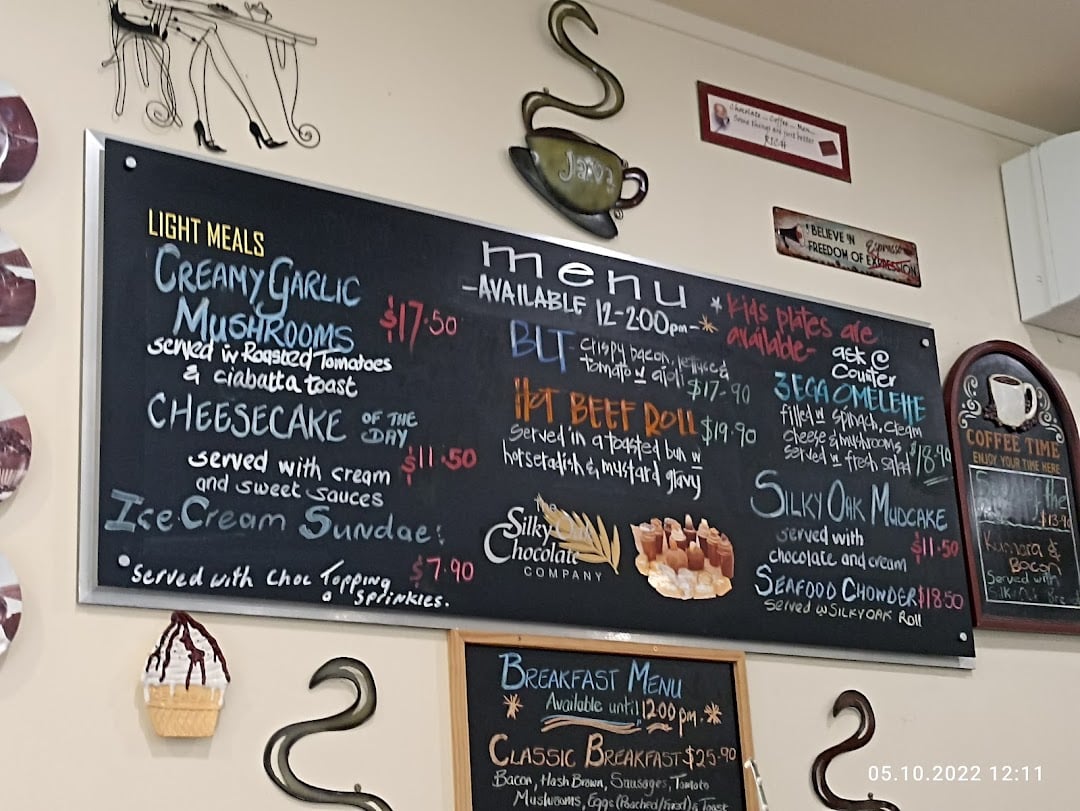 Java
Chocolate... Coffee... Men...
Some things are just better
RICH
I BELIEVE IN
FREEDOM OF EXPRESSION
Espresso
LIGHT MEALS
CREAMY GARLIC
MUSHROOMS
$17.50
served w Roasted Tomatoes
& ciabatta toast
CHEESECAKE OF THE
DAY
served with cream
and sweet sauces
$11.50
Ice Cream Sundae:
Served with Choc Topping
& sprinkles.
$7.90
menu
-AVAILABLE 12-2:00pm-
BLT - crispy bacon, lettuce &
tomato w aioli $17-90
HOT BEEF ROLL
$19.90
served in a toasted bun w
horseradish & mustard gravy
Silky Oak
Chocolate
COMPANY
Kids plates are
available-
ask @
Counter
3 EGG OMELETTE
filled w spinach, cream
cheese & mushrooms
served w fresh salad
$18.90
SILKY OAK MUDCAKE
served with
chocolate and cream
$11.50
SEAFOOD CHOWDER $18.50
Served w SILKY OAK Roll
COFFEE TIME
ENJOY YOUR TIME HERE
$13.90
Kumara &
Bacon
Served with
Silky Oak Bread
BREAKFAST MENU
Available until 12:00 pm.
CLASSIC BREAKFAST $25-90
Bacon, Hash Brown, Sausages, Tomato
Mushrooms, Eggs (Poached/Fried) & Toast
05.10.2022 12:11